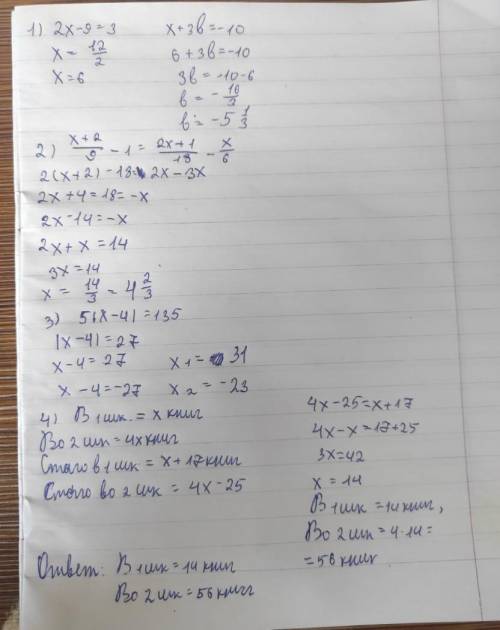 1) 2x-9=3
x = 12/2
x=6
x+3b=-10
6+3b=-10
3b=-10-6
b = -16/3
b = -5 1/3
2) x+2/9 - 1 = 2x+1/18 - x/6
2(x+2)-18= 2x-3x
2x+4=18=-x
2x-14=-x
2x+x=14
3x=14
x = 14/3 = 4 2/3
3) 5|x-4|=135
|x-4|=27
x-4=27 x1= 31
x-4=-27 x2=-23
4) В 1 шк. = x книг
Во 2 шк = 4x книг
Стало в 1 шк = x+17 книг
Стало во 2 шк = 4x-25
4x-25=x+17
4x-x=17+25
3x=42
x=14
В 1 шк =14 книг,
Во 2 шк = 4·14=
=56 книг
Ответ: В 1 шк =14 книг
Во 2 шк =56 книг